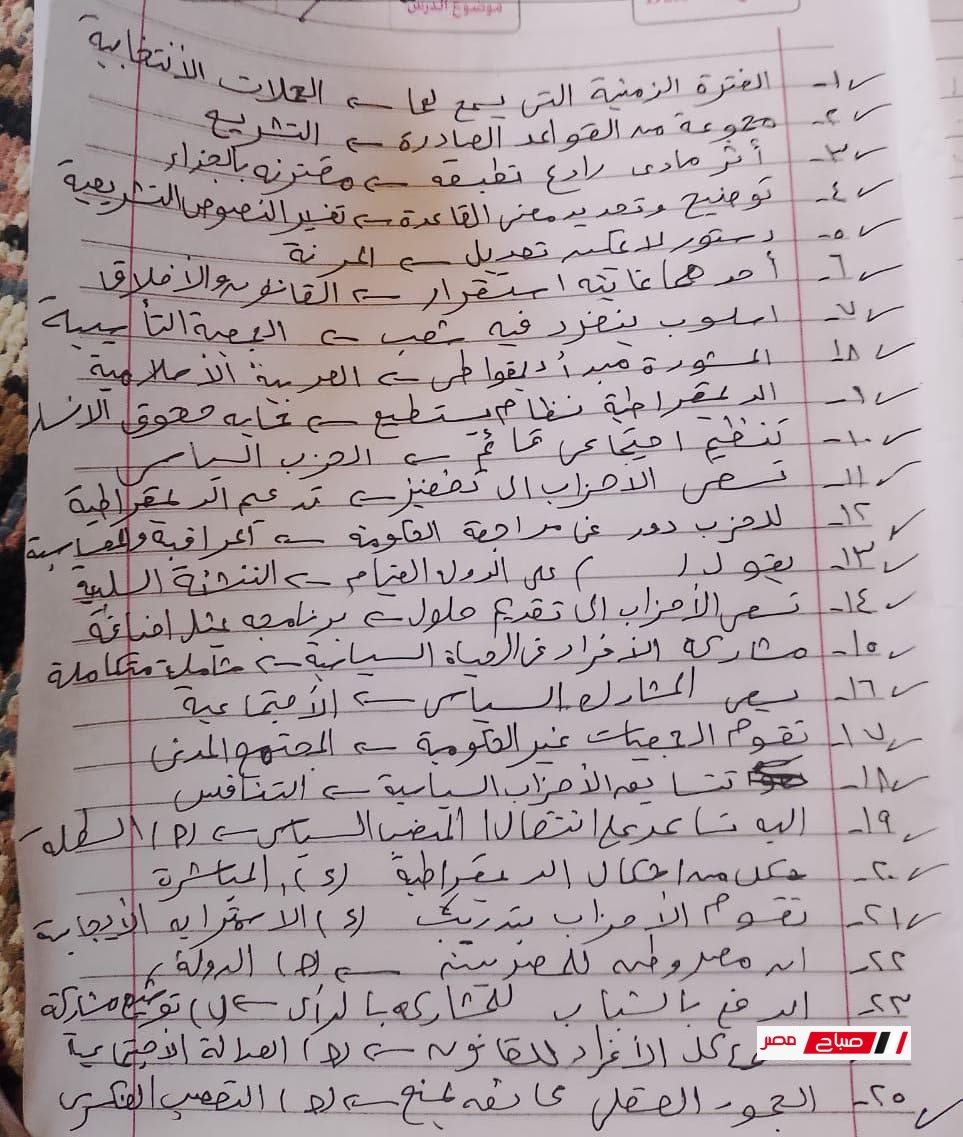 موضوع الدرس
١- الفترة الزمنية التي يسمح لها ← الحملات الأنتخابية
٢- مجموعة من القواعد الصادرة ← التشريع
٣- أثر مادى رادع تطبيقه ← مقترنه بالجزاء
٤- توضيح وتحديد معنى القاعدة ← تفسير النصوص التشريعية
٥- دستور لا يمكن تعديل ← المرنة
٦- أحدهما غايته استقرار ← القانون والأخلاق
٧- اسلوب ينفرد فيه شعب ← الجمعية التأسيسية
٨- المشورة مبدأ ديقواطى ← العربية الأسلامية
٩- الديمقراطية نظام يستطيع ← حقوق الانسان
١٠- تنظيم اجتماعى قائم ← الحزب السياسى
١١- تسعى الأحزاب الى تحفيز ← تدعم الديمقراطية
١٢- للحزب دور فى مراجعة الحكومة ← المراقبة والمحاسبة
١٣- يقول ( ) على الدول القيام ← التنشئة السلبية
١٤- تسعى الأحزاب الى تقديم حلول ← برنامجه يمثل اضافة
١٥- مشاركة الأفراد فى الحياة السياسية ← شاملة متكاملة
١٦- يسعى المشارك السياسى ← الأجتماعية
١٧- تقوم الجمعيات غير الحكومية ← المجتمع المدنى
١٨- تتسابق الأحزاب السياسية ← التنافس
١٩- اليه تساعد على انتقال المنصب السياسى ← (م) السلطة
٢٠- شكل من اشكال الديمقراطية (د) المباشرة
٢١- تقوم الأحزاب بتدريب (د) الاستمرارية الأيجابية
٢٢- ان معروضه للضريبة ← (ج) الدولة
٢٣- الدفع بالشباب للمشاركة بالرأى ← (ب) توسيع مشاركة
كل الأفراد للقانون ← (ج) العدالة الأجتماعية
٢٥- الجمود العقلى عائقه يمنع ← (ج) التعصب الفكرى
صباح مصر